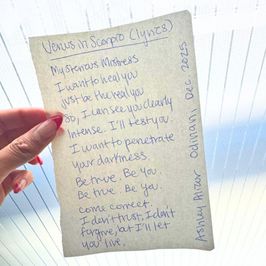 Venus in Scorpio (lyrics)
Mysterious Mistress
I want to heal you
just be the real you
So, I can see you clearly
Intense. I'll test you.
I want to penetrate
your darkness.
Be true. Be You.
Be true. Be you.
come correct.
I don't trust, I don't
forgive, but I'll let
you live.
Ashley Aizor Odinani, Dec. 2025